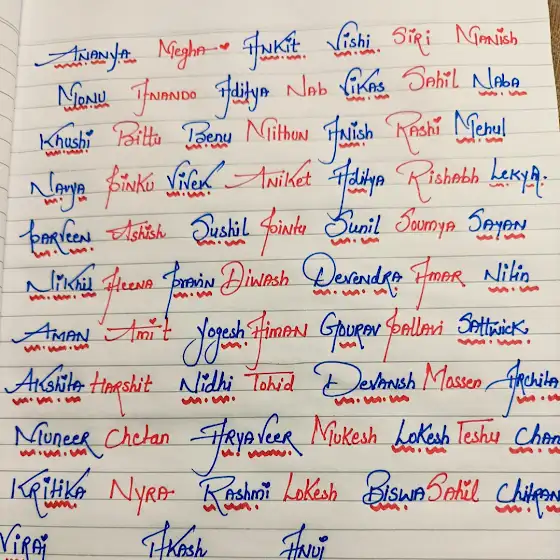 Ananya Megha Ankit Vishi Siri Manish
Monu Anando Aditya Nab Vikas Sahil Naba
Khushi Bittu Benu Mithun Anish Rashi Mehul
Navya Pinku Vivek Aniket Aditya Rishabh Lekya
Parveen Ashish Sushil Pintu Sunil Soumya Sayan
Nikhil Heena Pravin Diwash Devendra Amar Nitin
Aman Amit Yogesh Himan Gourav Pallavi Sattwick
Akshita Harshit Nidhi Tohid Devansh Mossen Archita
Muneer Chetan Aryaveer Mukesh Lokesh Teshu Chan
Kritika Nyra Rashmi Lokesh Biswa Sahil Chitran
Viraj Akash Anuj